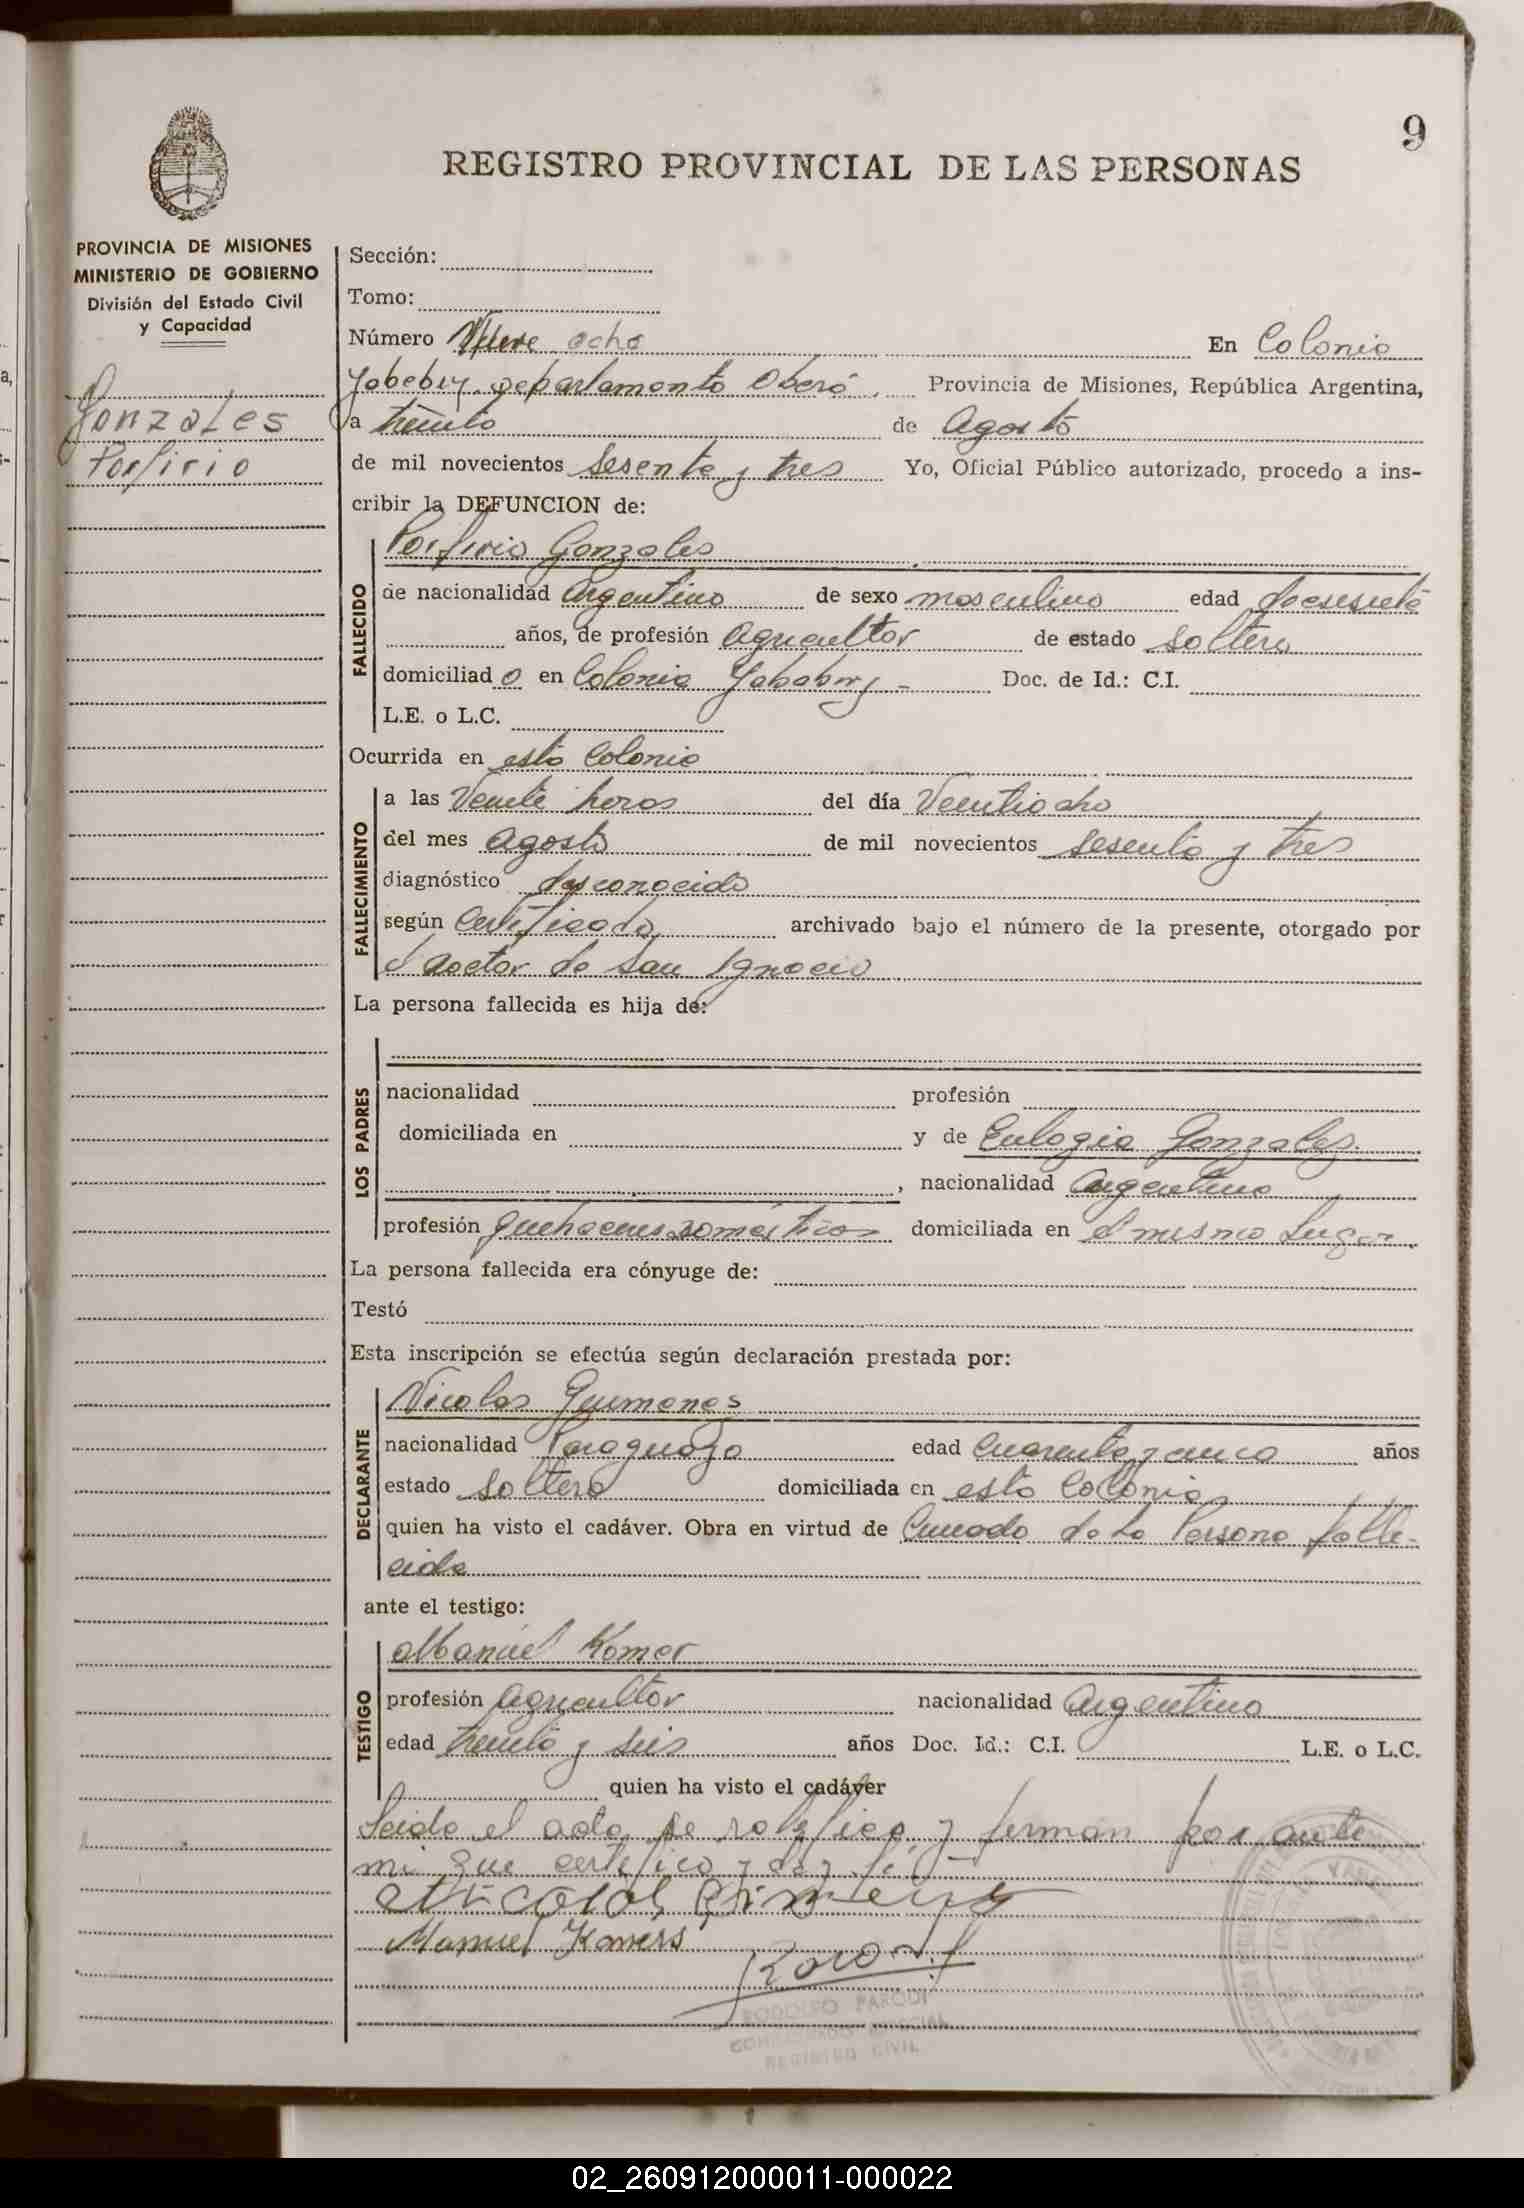 9
REGISTRO PROVINCIAL DE LAS PERSONAS
PROVINCIA DE MISIONES
MINISTERIO DE GOBIERNO
División del Estado Civil
y Capacidad
Gonzales
Porfirio
Sección:
Tomo:
Número ocho En Colonia
Yabebiry departamento Oberá, Provincia de Misiones, República Argentina,
a treinta de Agosto
de mil novecientos sesenta y tres Yo, Oficial Público autorizado, procedo a ins-
cribir la DEFUNCION de:
FALLECIDO
Porfirio Gonzales
de nacionalidad Argentino de sexo masculino edad diecisiete
años, de profesión Agricultor de estado soltero
domiciliado en Colonia Yababiry - Doc. de Id.: C.I.
L.E. o L.C.
Ocurrida en esta Colonia
FALLECIMIENTO
a las Veinte horas del día Veintiocho
del mes agosto de mil novecientos sesenta y tres
diagnóstico desconocido
según Certificado archivado bajo el número de la presente, otorgado por
el doctor de San Ignacio
La persona fallecida es hija de:
LOS PADRES
nacionalidad profesión
domiciliada en y de Eulogia Gonzalez
, nacionalidad Argentina
profesión quehaceres domésticos domiciliada en el mismo Lugar.
La persona fallecida era cónyuge de:
Testó
Esta inscripción se efectúa según declaración prestada por:
DECLARANTE
Nicolas Gimenes
nacionalidad Paraguayo edad Cuarenta y cinco años
estado soltero domiciliada en esta Colonia
quien ha visto el cadáver. Obra en virtud de Cuñado de la Persona falle-
cida
ante el testigo:
TESTIGO
Manuel Komer
profesión Agricultor nacionalidad Argentino
edad treinta y seis años Doc. Id.: C.I. L.E. o L.C.
quien ha visto el cadáver
Leida el acta se ratifica y firman por ante
mi que certifico y doy fé
Nicolas Gimenez
Manuel Komers
RODOLFO PARODI
REGISTRO CIVIL
02_260912000011-000022